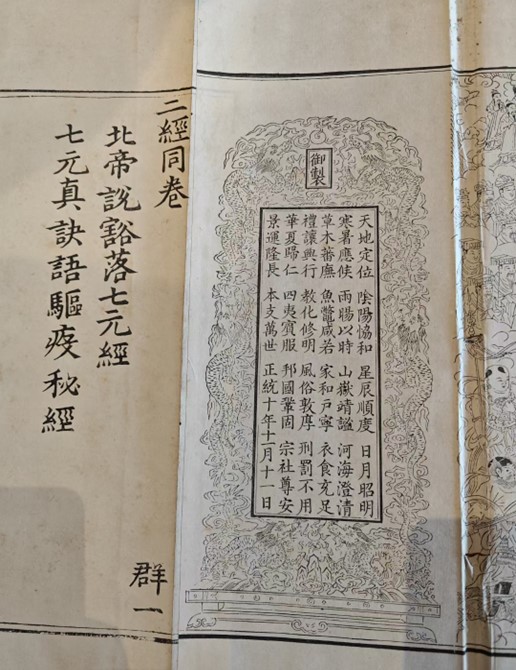 御製
天地定位 陰陽恊和 星辰順度 日月昭明
寒暑應候 雨暘以時 山嶽靖謐 河海澄清
草木蕃廡 魚鼈咸若 家和戶寧 衣食充足
禮讓興行 教化修明 風俗敦厚 刑罰不用
華夏歸仁 四夷賓服 邦國鞏固 宗社尊安
景運隆長 本支萬世 正統十年十一月十一日
二經同卷
群一
北帝說豁落七元經
七元真訣語驅疫秘經